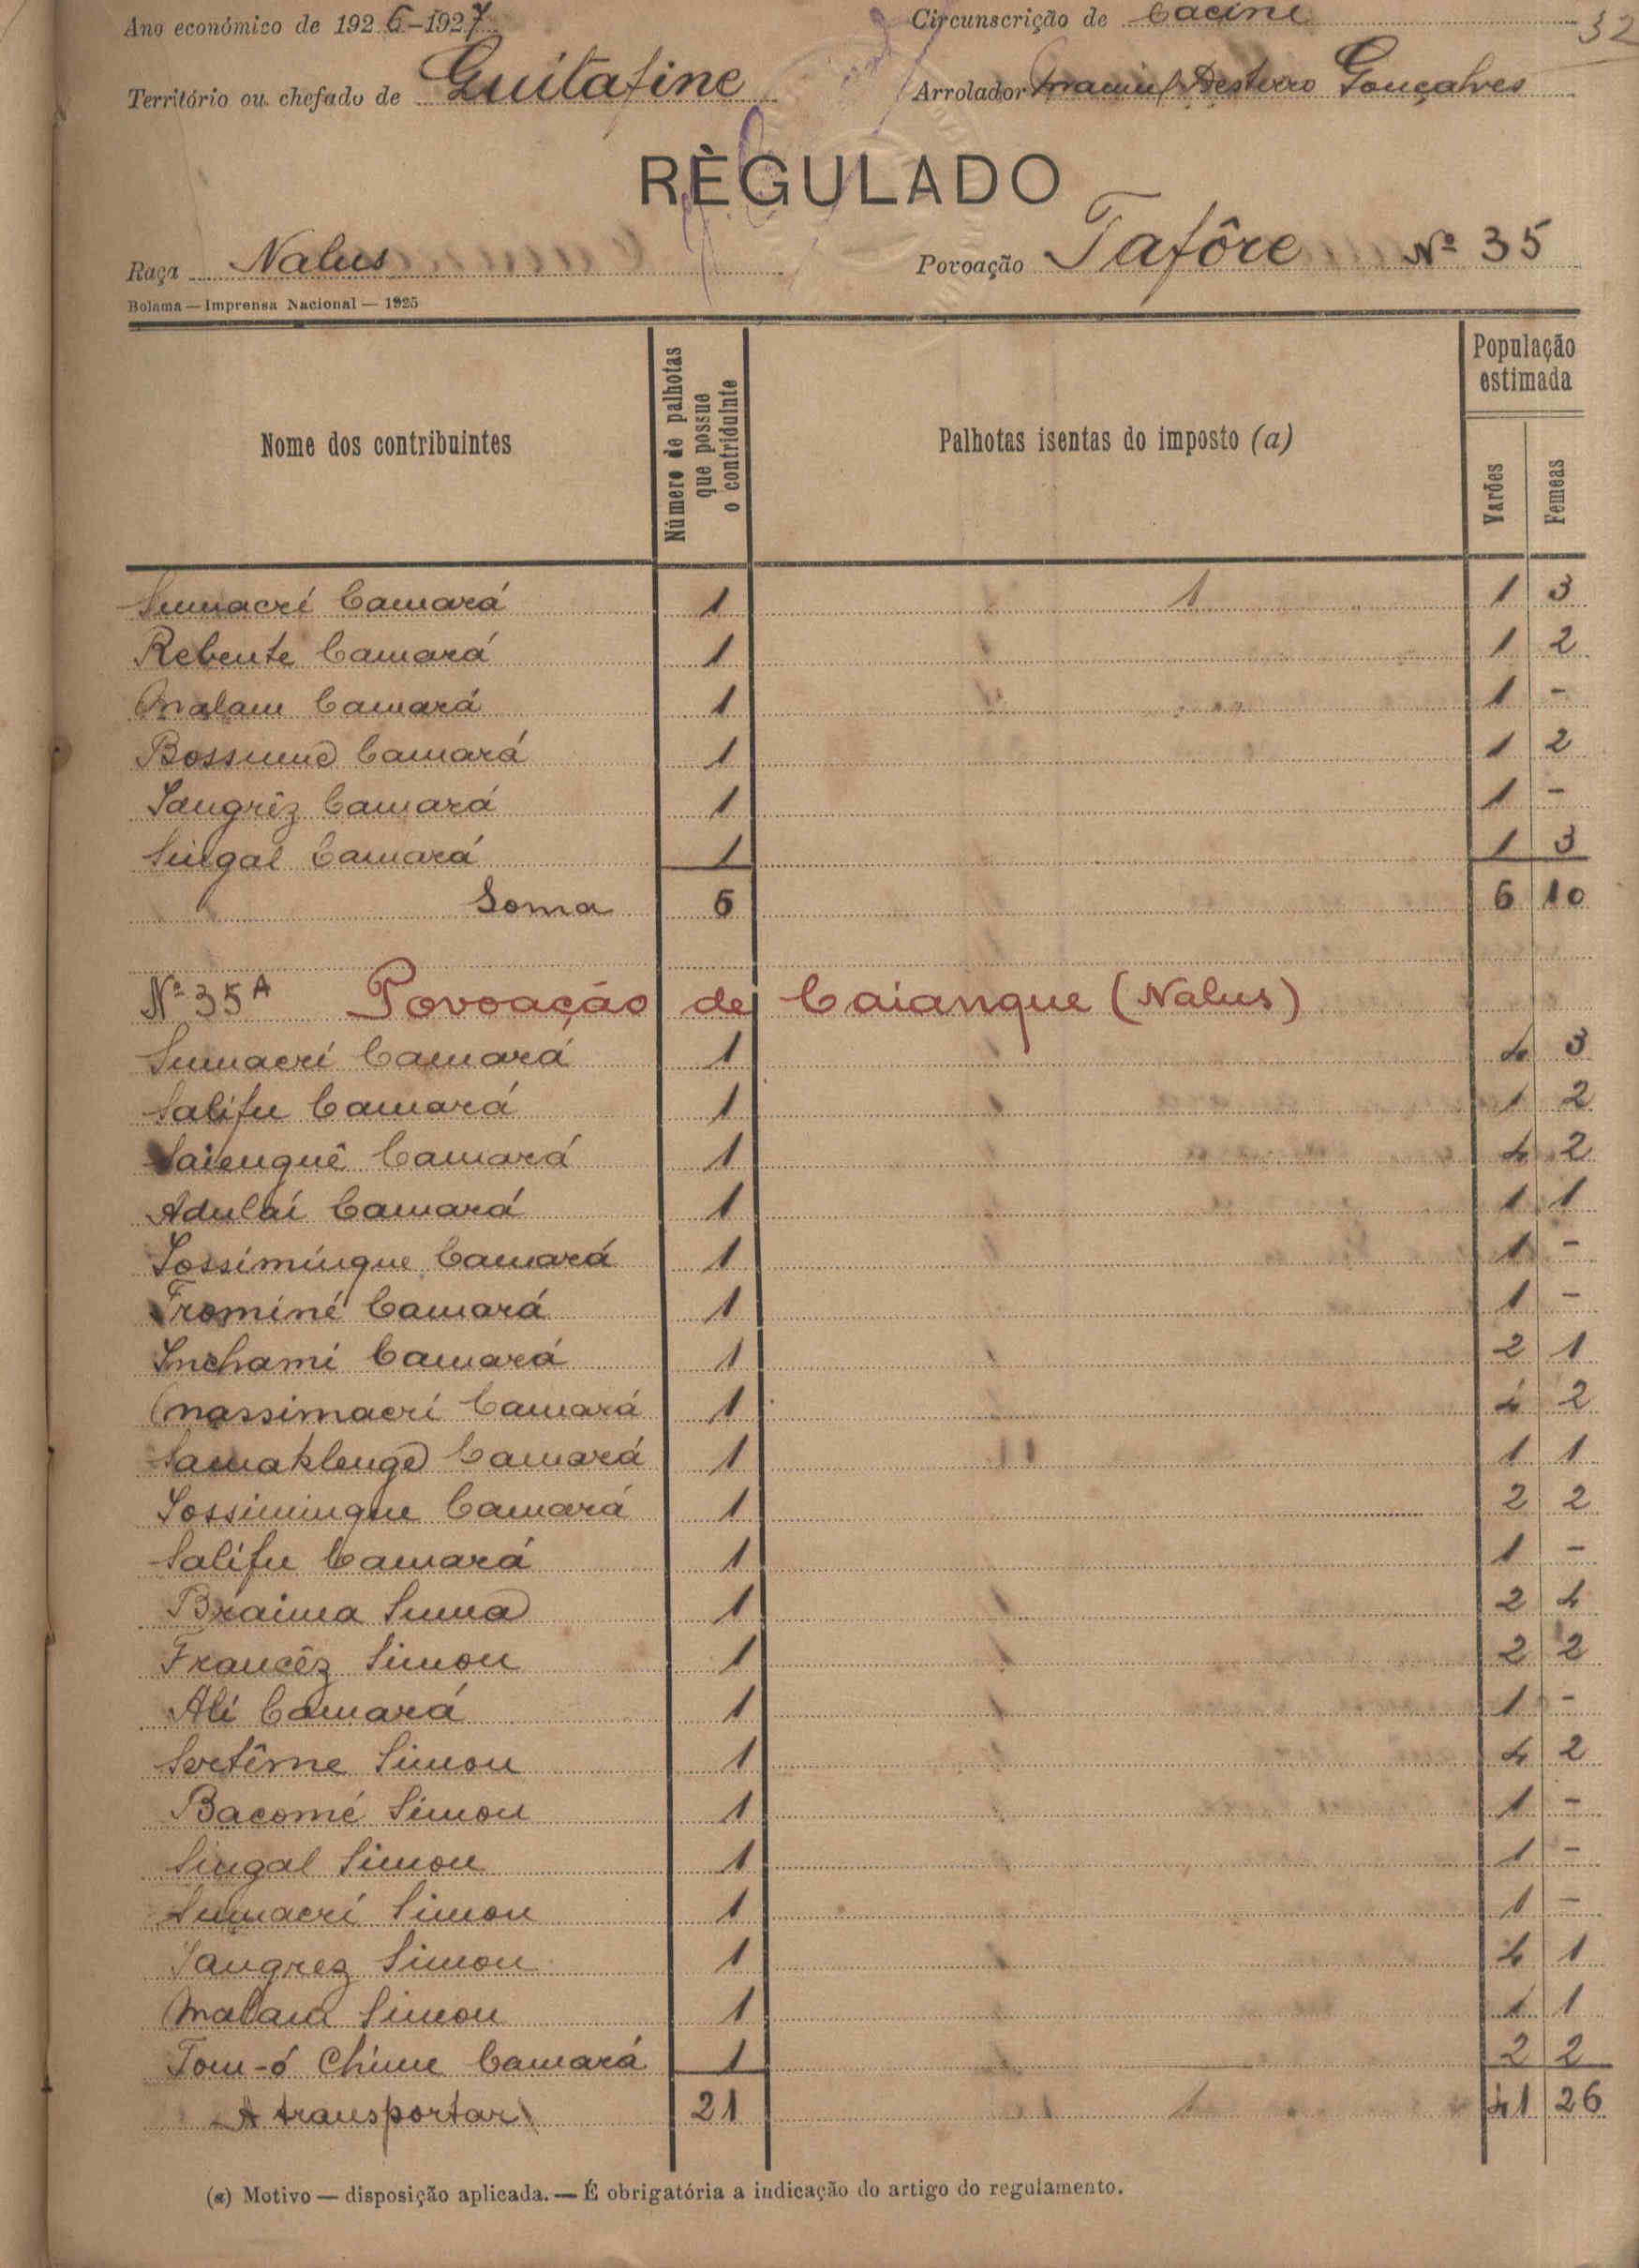 Ano económico de 1926-1927 Circunscrição de Cacine 32
Território ou chefado de Guitafine Arrolador Manuel Desterro Gonçalves
RÈGULADO
Raça Nalus Povoação Tafôre Nº 35
Bolama — Imprensa Nacional — 1925
Nome dos contribuintes Número de palhotas que possue o contriduinte Palhotas isentas do imposto (a) População estimada Varões Femeas
Sumacrí Camará 1 1 1 3
Rebente Camará 1 1 2
Malam Camará 1 1 -
Bossumo Camará 1 1 2
Sangrêz Camará 1 1 -
Singal Camará 1 1 3
Soma 6 6 10
Nº 35 A Povoação de Caianque (Nalus)
Sumacrí Camará 1 4 3
Salifu Camará 1 1 2
Saienguê Camará 1 4 2
Adulai Camará 1 1 1
Sossimingue Camará 1 1 -
Frominé Camará 1 1 -
Inchami Camará 1 2 1
Massimacri Camará 1 4 2
Samaklenge Camará 1 1 1
Sossimingue Camará 1 2 2
Salifu Camará 1 1 -
Braima Suma 1 2 4
Francêz Simon 1 2 2
Ali Camará 1 1 -
Sertême Simon 1 4 2
Bacomé Simon 1 1 -
Singal Simon 1 1 -
Sumacrí Simon 1 1 -
Sangrez Simon 1 4 1
Malam Simon 1 1 1
Tom-ó Chime Camará 1 2 2
A transportar 21 1 41 26
(a) Motivo — disposição aplicada. — É obrigatória a indicação do artigo do regulamento.